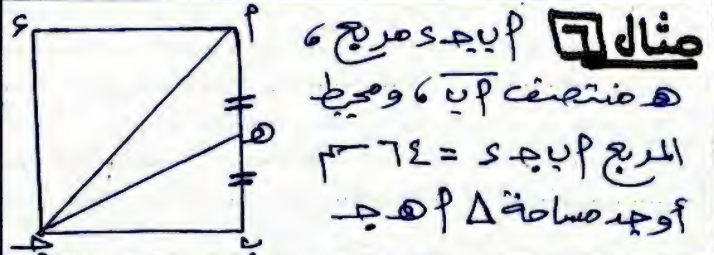 مثال ٦ أ ب جـ د مربع ،
هـ منتصف أ ب ، ومحيط
المربع أ ب جـ د = ٦٤ سم
أوجد مساحة Δ أ هـ جـ
د أ
هـ
جـ ب